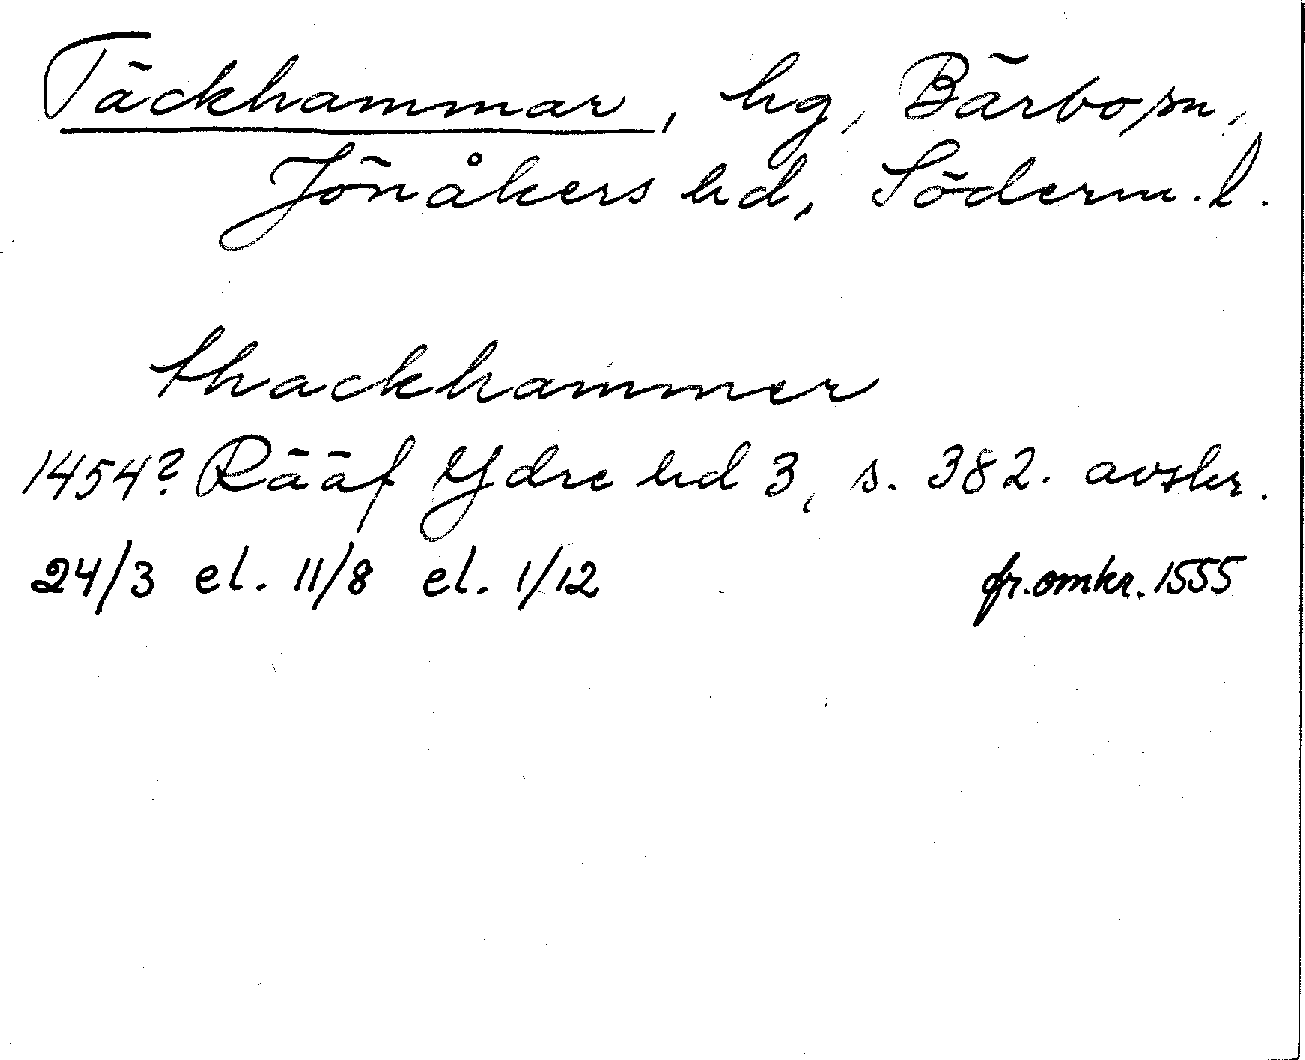 Täckhammar, hg, Bärbo sn,
Jönåkers hd, Söderm.l.
thackhammer
1454? Rääf Ydre hd 3, s. 382. avskr.
24/3 el. 11/8 el. 1/12 fr. omkr. 1555